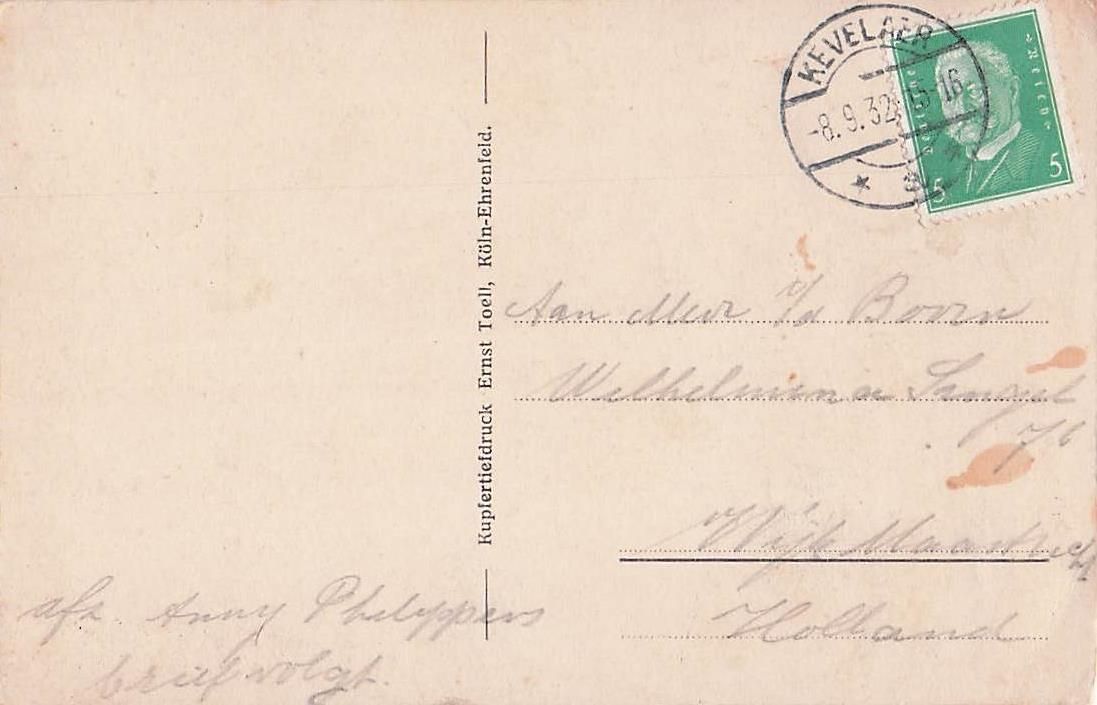 KEVELAER
-8.9.32 15-16
Deutsches Reich
5 5
Kupfertiefdruck Ernst Toell, Köln-Ehrenfeld.
Aan Mevr v/d Boorn
Wilhelmina Singel
76
Wijk Maastricht
Holland
afz. Anny Philippens
brief volgt.